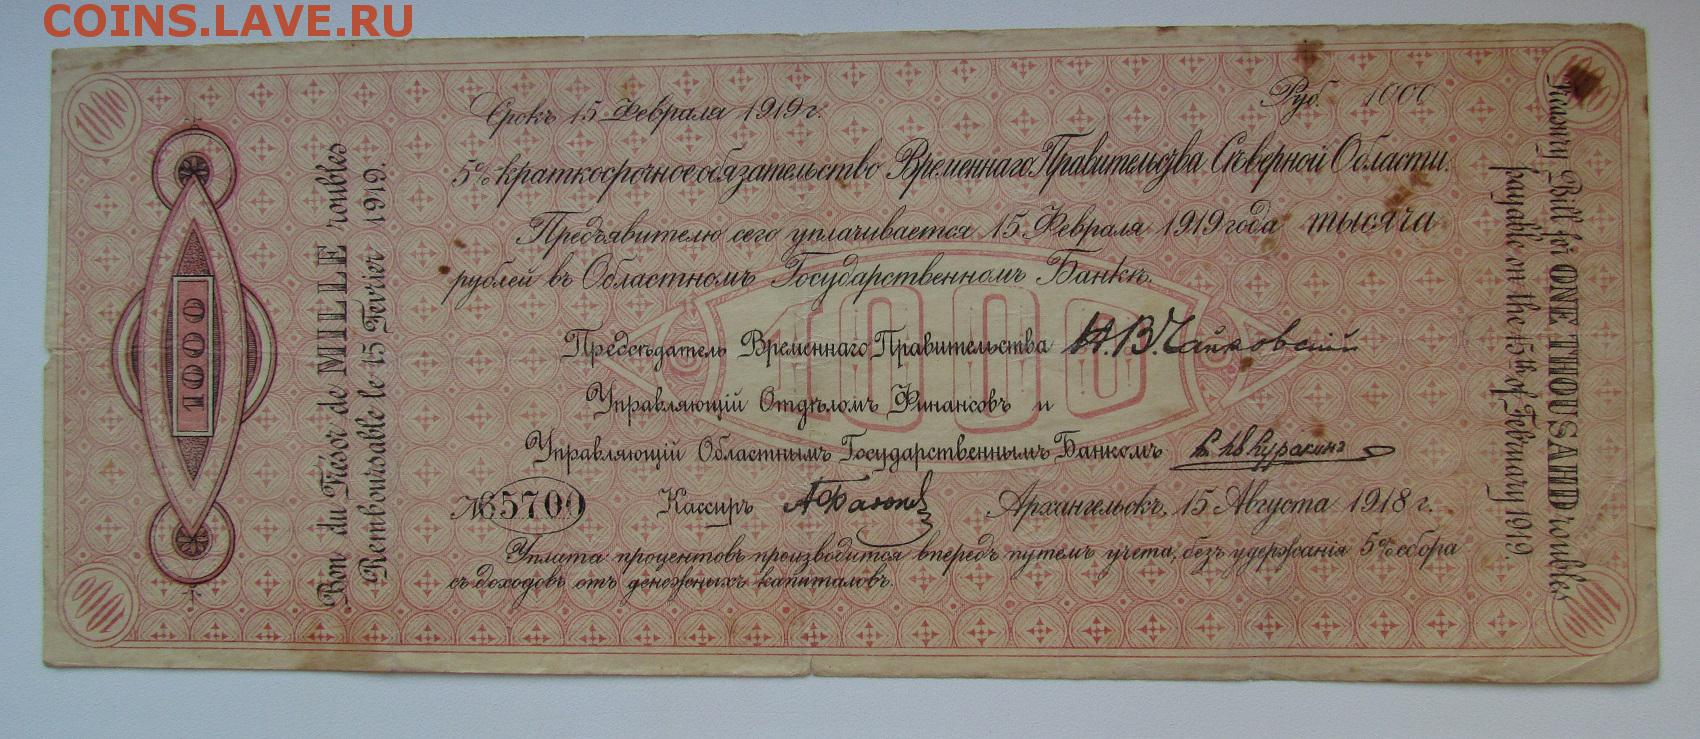 COINS.LAVE.RU
1000
1000
Bon du Trésor de MILLE roubles
Remboursable le 15 Fevrier 1919.
Срокъ 15 Февраля 1919 г.
Руб. 1000
5% краткосрочное обязательство Временнаго Правительства Сѣверной Области.
Предъявителю сего уплачивается 15 Февраля 1919 года тысяча
рублей въ Областномъ Государственномъ Банкѣ.
1000
Предсѣдатель Временнаго Правительства Н. В. Чайковский
Управляющій Отдѣломъ Финансовъ и
Управляющій Областнымъ Государственнымъ Банкомъ Куракинъ
№ 65700 Кассиръ Архангельскъ, 15 Августа 1918 г.
Уплата процентовъ производится впередъ путемъ учета, безъ удержанія 5% сбора
съ доходовъ отъ денежныхъ капиталовъ.
Treasury Bill for ONE THOUSAND roubles
payable on the 15th of February 1919.
1000
1000
COINS.LAVE.RU